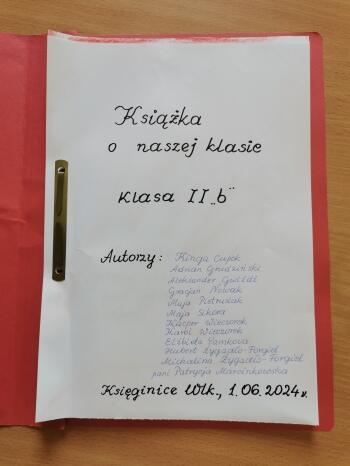 Książka
o naszej klasie
Klasa II „b"
Autorzy: Kinga Cujok
Adrian Grudziński
Aleksander Gwildt
Gracjan Nowak
Maja Pietrusiak
Maja Sikora
Kacper Wieczorek
Karol Wieczorek
Elžbieta Pamkova
Hubert Łygadło-Forgiel
Michalina Łygadło-Forgiel
pani Patrycja Marcinkowska
Księginice Wlk., 1.06.2024r.